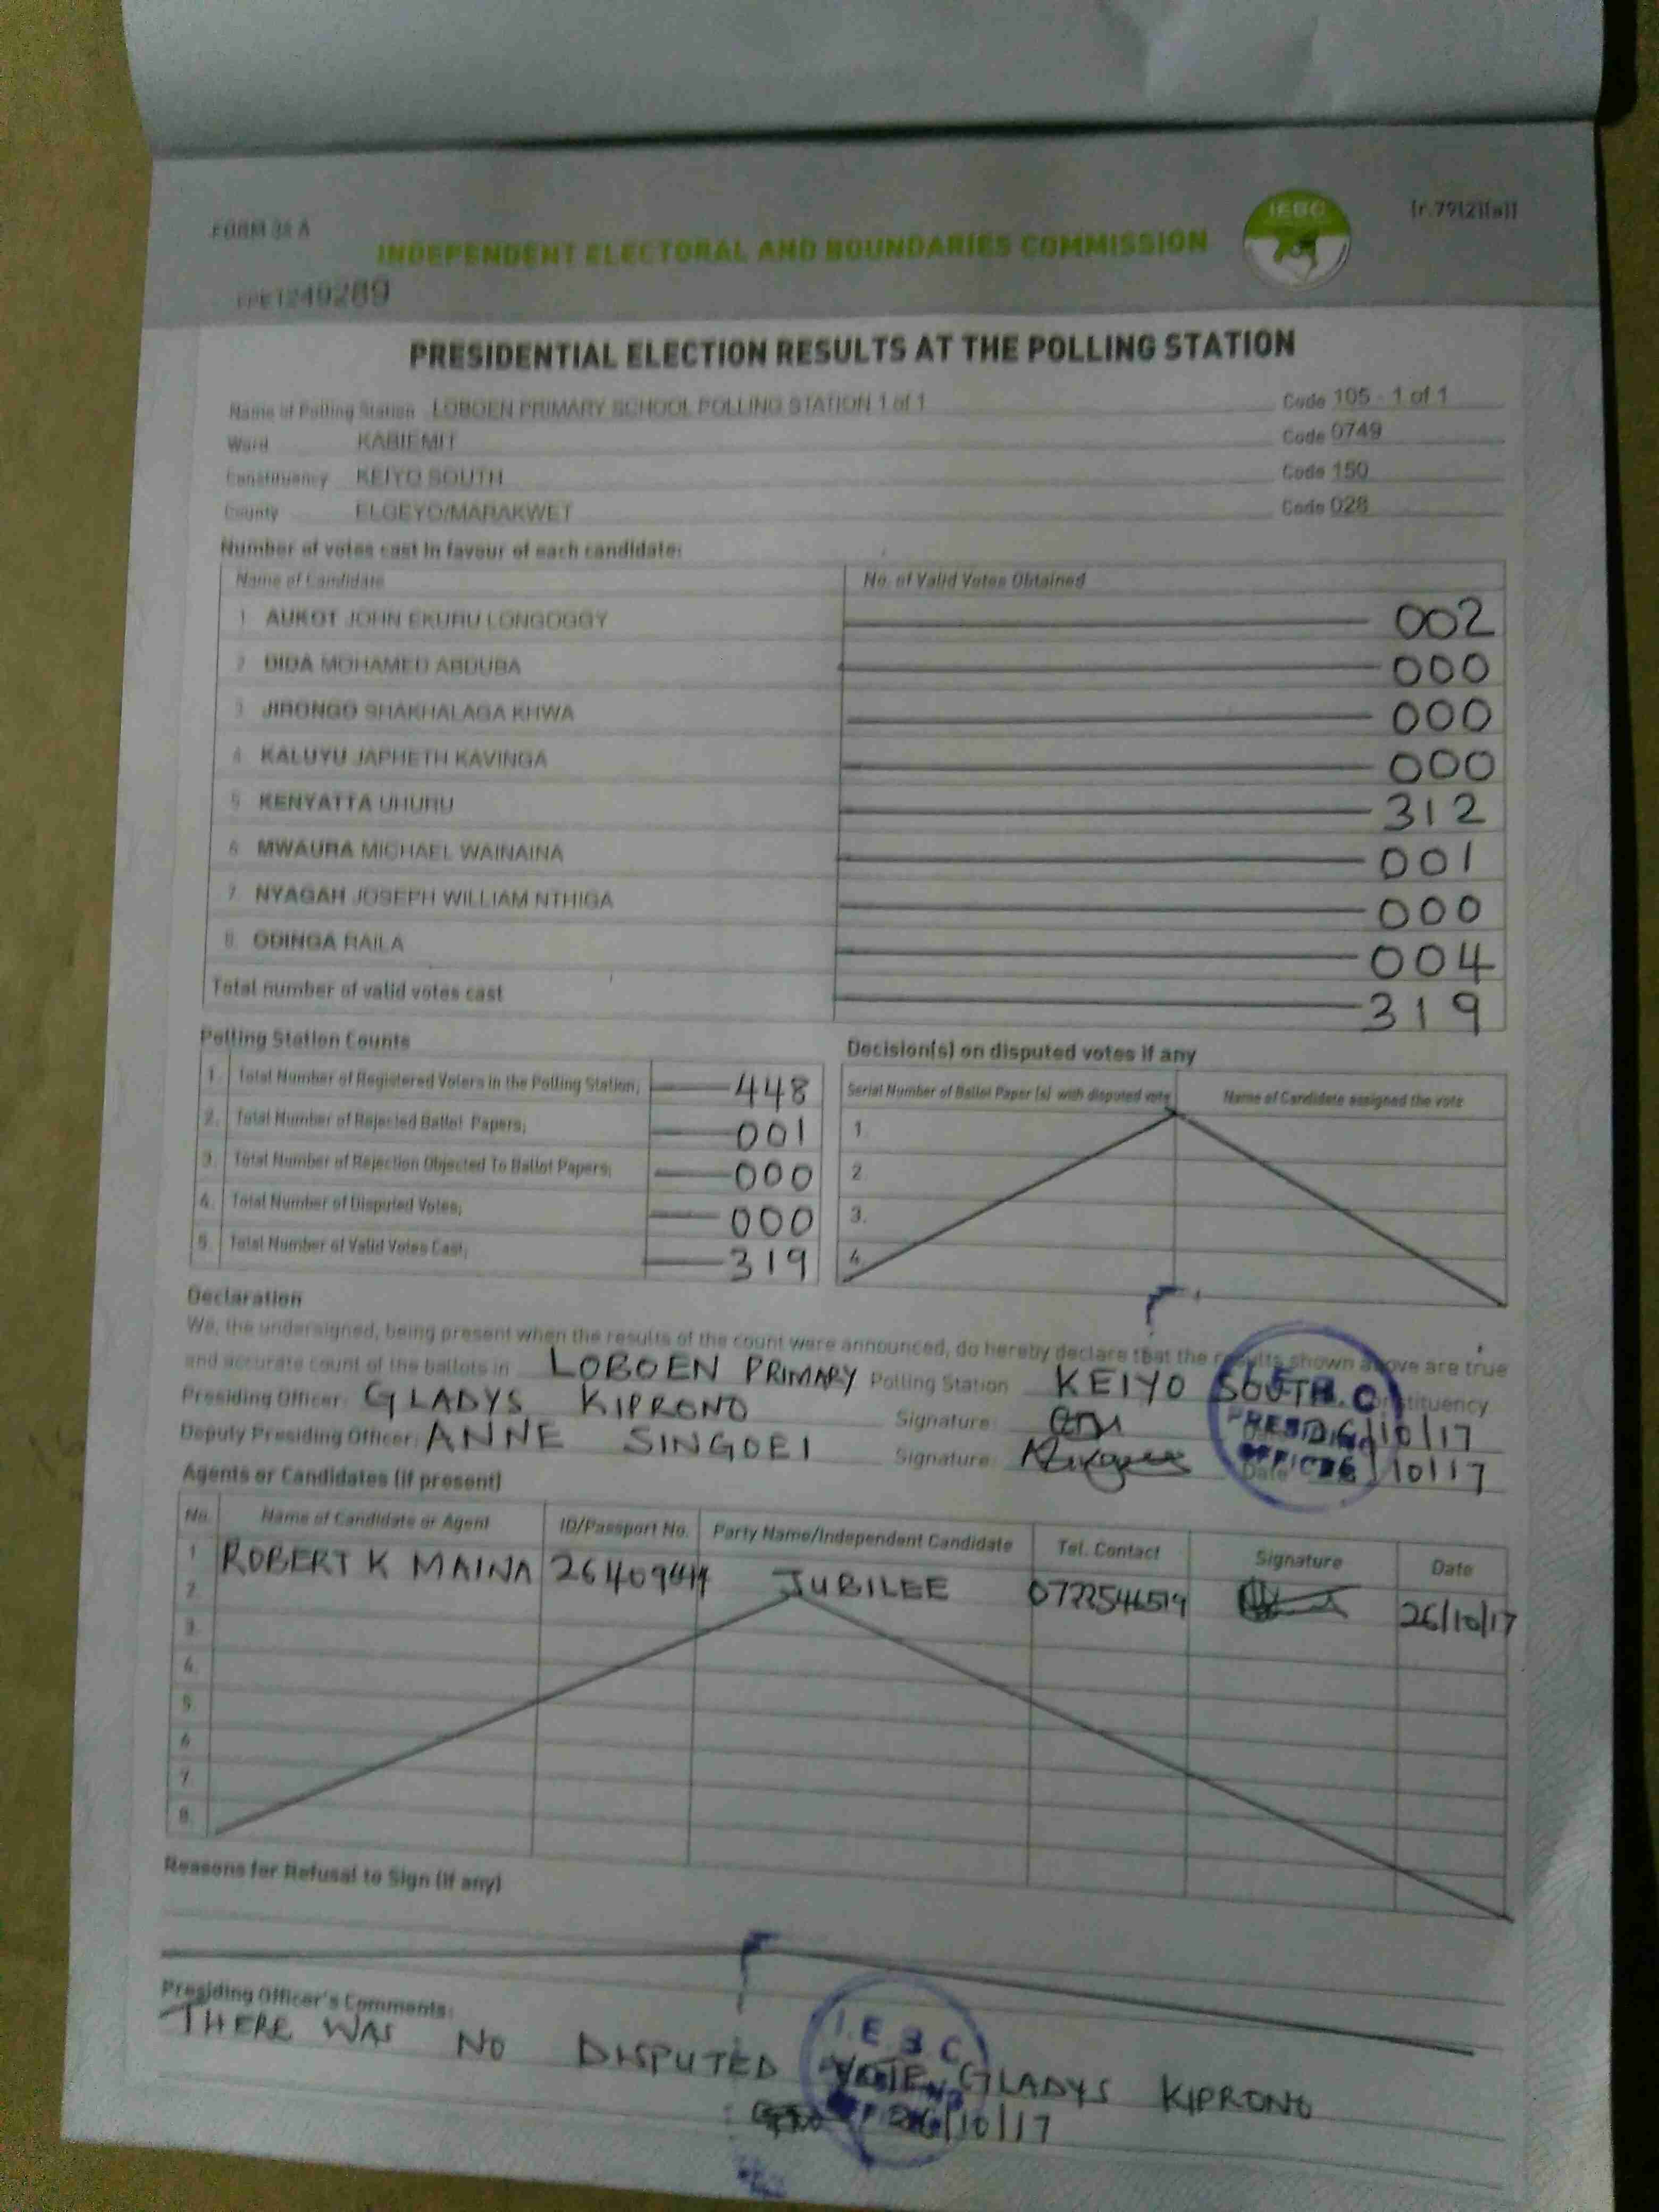 FORM 34 A
[r.79(2)(a)]
IEBC
INDEPENDENT ELECTORAL AND BOUNDARIES COMMISSION
1249289
PRESIDENTIAL ELECTION RESULTS AT THE POLLING STATION
Name of Polling Station LOBOEN PRIMARY SCHOOL POLLING STATION 1 of 1 Code 105 - 1 of 1
Ward KABIEMIT Code 0749
Constituency KEIYO SOUTH Code 150
County ELGEYO/MARAKWET Code 028
Number of votes cast in favour of each candidate:
Name of Candidate No. of Valid Votes Obtained
1 AUKOT JOHN EKURU LONGOGGY 002
2 DIDA MOHAMED ABDUBA 000
3 JIRONGO SHAKHALAGA KHWA 000
4 KALUYU JAPHETH KAVINGA 000
5 KENYATTA UHURU 312
6 MWAURA MICHAEL WAINAINA 001
7 NYAGAH JOSEPH WILLIAM NTHIGA 000
8 ODINGA RAILA 004
Total number of valid votes cast 319
Polling Station Counts
1. Total Number of Registered Voters in the Polling Station; 448
2. Total Number of Rejected Ballot Papers; 001
3. Total Number of Rejection Objected To Ballot Papers; 000
4. Total Number of Disputed Votes; 000
5. Total Number of Valid Votes Cast; 319
Decision(s) on disputed votes if any
Serial Number of Ballot Paper (s) with disputed vote Name of Candidate assigned the vote
1.
2.
3.
4.
Declaration
We, the undersigned, being present when the results of the count were announced, do hereby declare that the results shown above are true
and accurate count of the ballots in LOBOEN PRIMARY Polling Station KEIYO SOUTH Constituency
Presiding Officer: GLADYS KIPRONO Signature: 26/10/17
Deputy Presiding Officer: ANNE SINGOEI Signature: Date 26/10/17
PRESIDING
OFFICER
Agents or Candidates (if present)
No. Name of Candidate or Agent ID/Passport No. Party Name/Independent Candidate Tel. Contact Signature Date
1 ROBERT K MAINA JUBILEE 26/10/17
2
3
4
5
6
7
8
Reasons for Refusal to Sign (if any)
Presiding Officer's Comments:
THERE WAS NO DISPUTED VOTE GLADYS KIPRONO
26/10/17
I.E.B.C